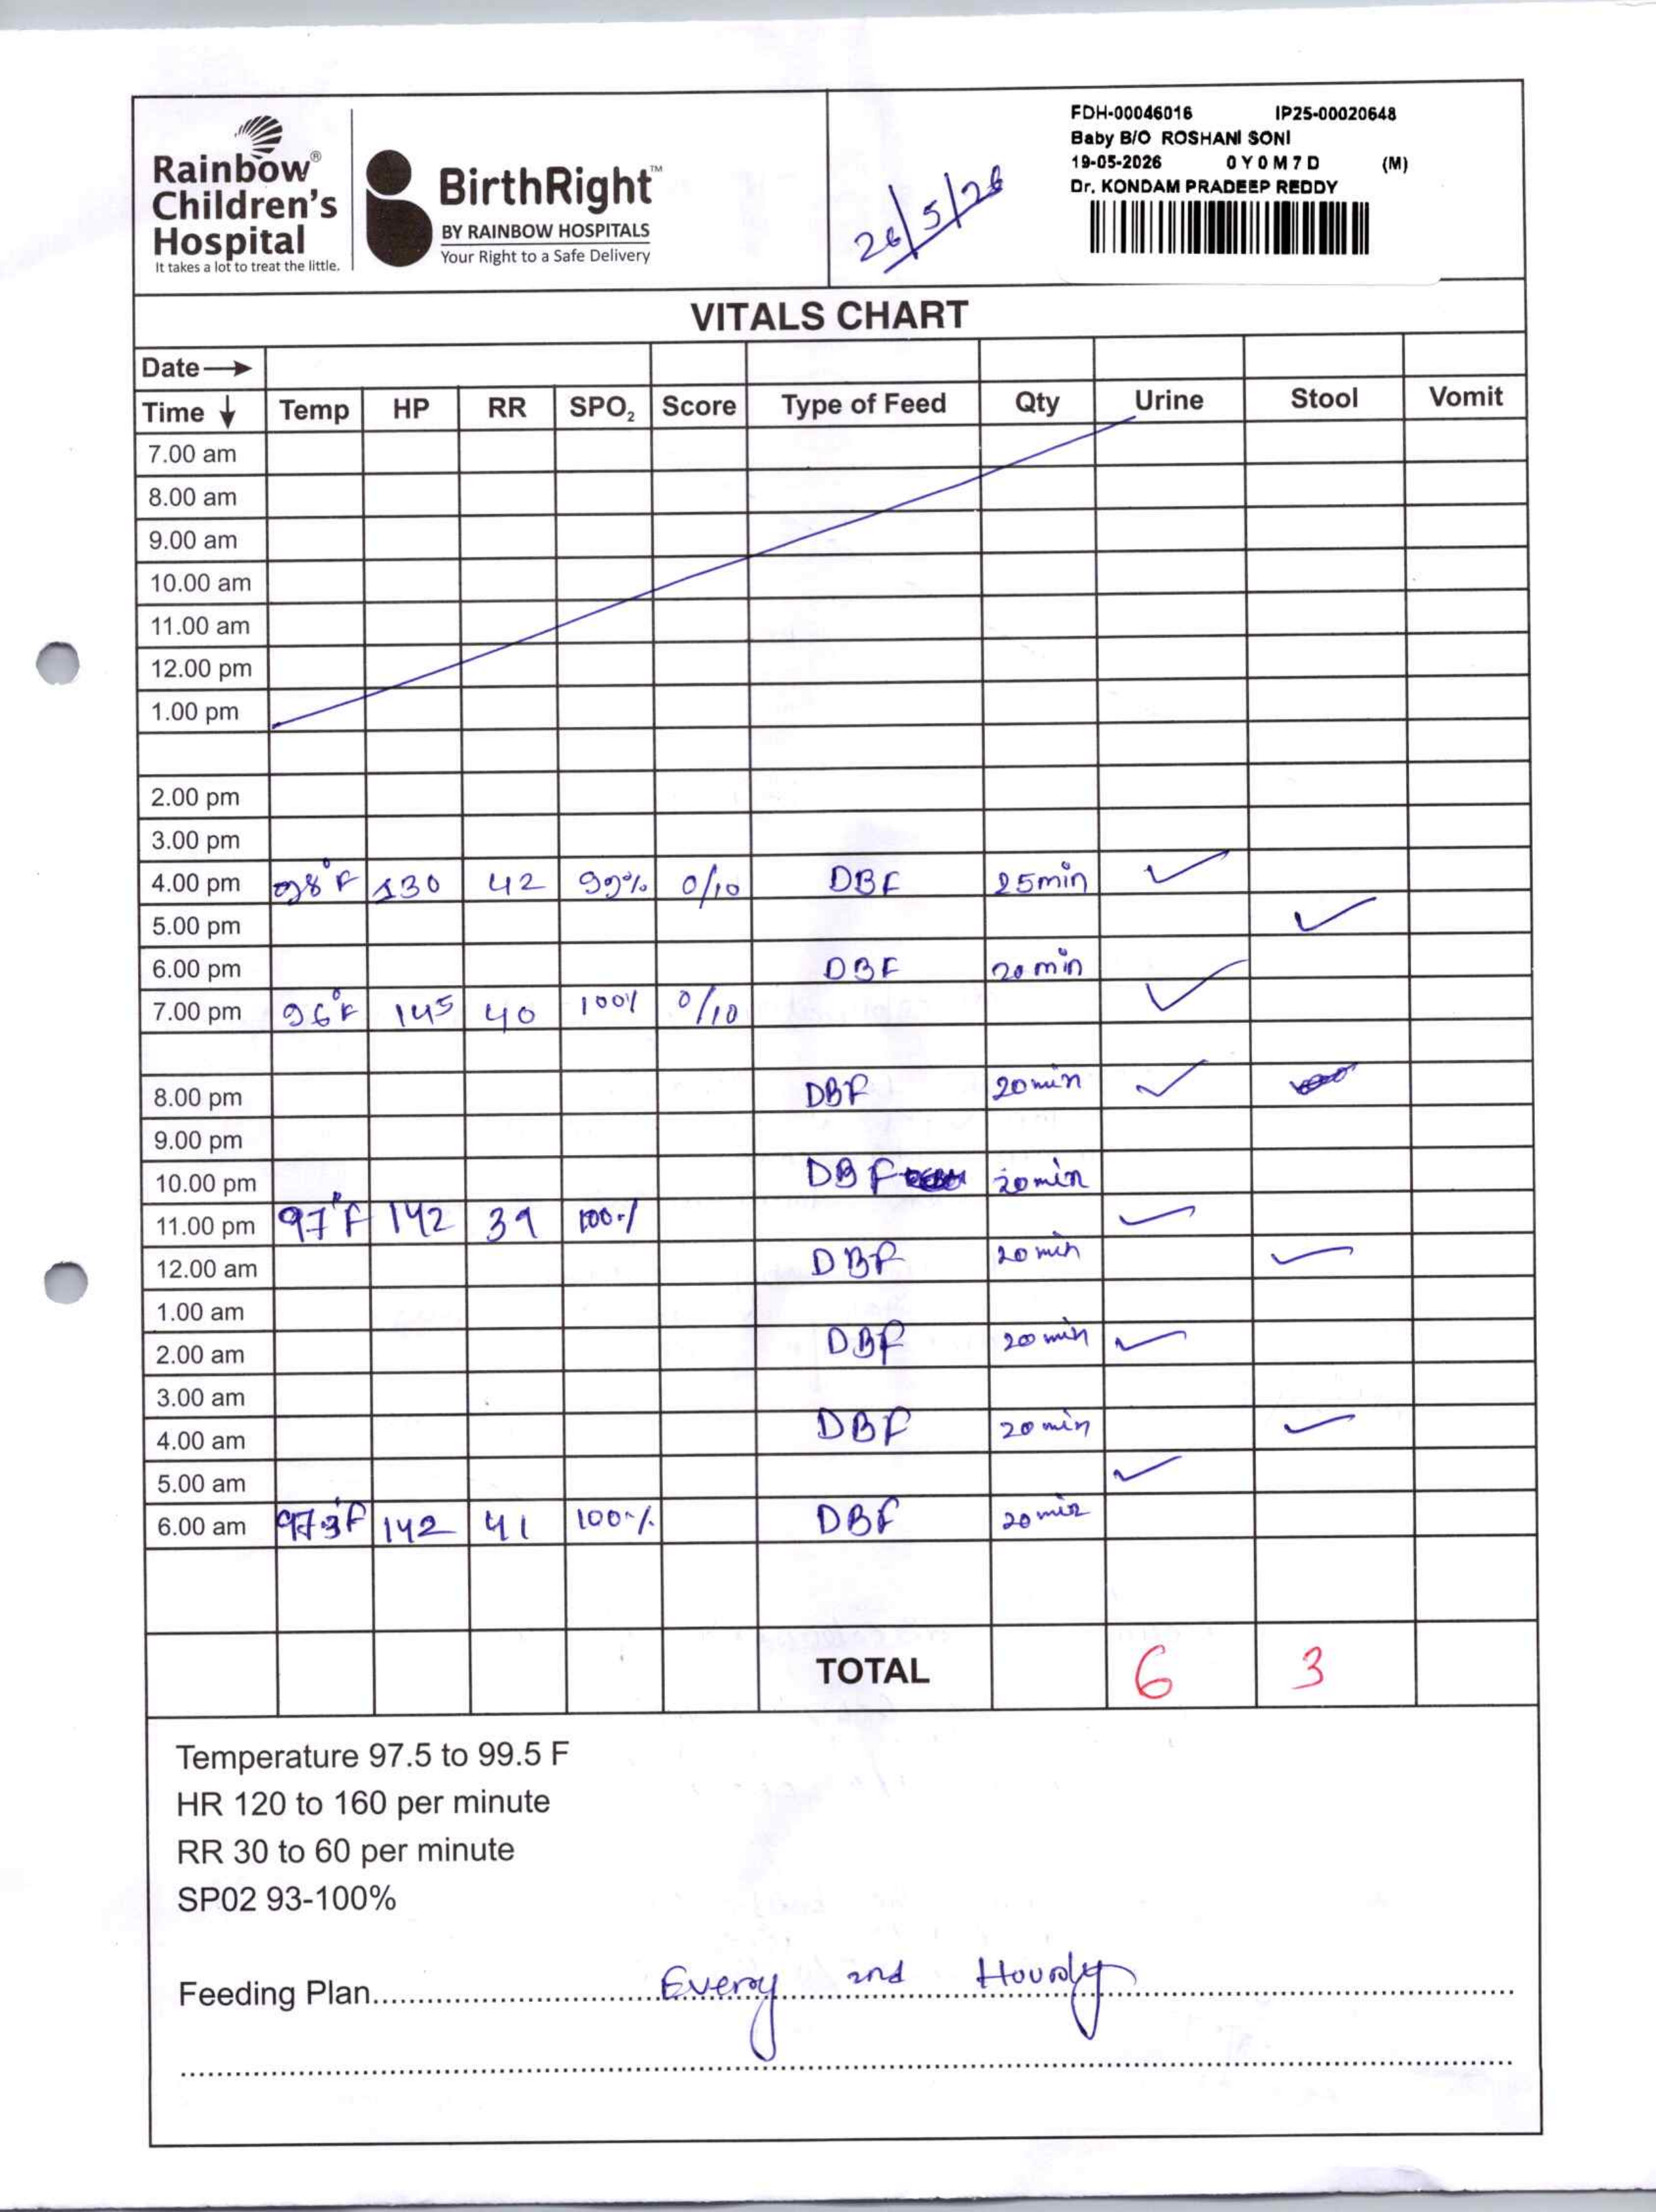 Rainbow®
Children's
Hospital
It takes a lot to treat the little.
BirthRight™
BY RAINBOW HOSPITALS
Your Right to a Safe Delivery
26/5/26
FDH-00046016 IP25-00020648
Baby B/O ROSHANI SONI
19-05-2026 0Y0M7D (M)
Dr. KONDAM PRADEEP REDDY
VITALS CHART
Date→
Time ↓ Temp HP RR SPO₂ Score Type of Feed Qty Urine Stool Vomit
7.00 am
8.00 am
9.00 am
10.00 am
11.00 am
12.00 pm
1.00 pm
2.00 pm
3.00 pm
4.00 pm 98°F 130 42 99% 0/10 DBF 25min ✓
5.00 pm ✓
6.00 pm DBF 20 min
7.00 pm 96°F 145 40 100% 0/10 ✓
8.00 pm DBF 20min ✓
9.00 pm
10.00 pm DBF 20min
11.00 pm 97°F 142 39 100% ✓
12.00 am DBF 20 min ✓
1.00 am
2.00 am DBF 20 min ✓
3.00 am
4.00 am DBF 20 min ✓
5.00 am ✓
6.00 am 97.3°F 142 41 100% DBF 20 min
TOTAL 6 3
Temperature 97.5 to 99.5 F
HR 120 to 160 per minute
RR 30 to 60 per minute
SP02 93-100%
Feeding Plan Every 2nd Hourly